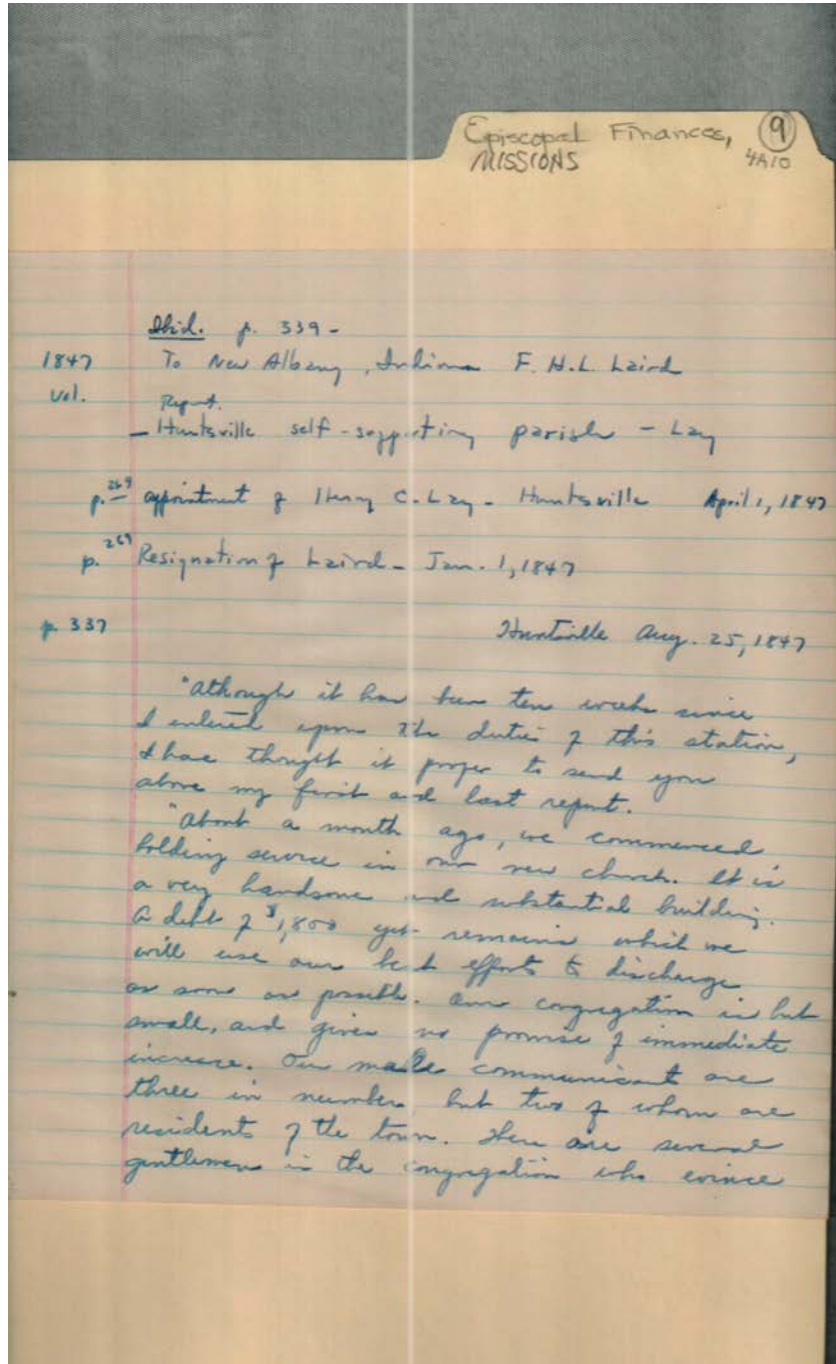 Episcopal Finances, 9
MISSIONS 4A10
Ibid. p. 339 -
1847 To New Albany, Indiana F. H. L. Laird
Vol. Report.
- Huntsville self-supporting parish - Lay
p. 269 appointment of Henry C. Lay - Huntsville April 1, 1847
p. 269 Resignation of Laird - Jan. 1, 1847
p. 337 Huntsville Aug. 25, 1847
"Athough it has been ten weeks since
I entered upon the duties of this station,
I have thought it proper to send you
above my first and last report.
"About a month ago, we commenced
holding service in our new church. It is
a very handsome and substantial building.
A debt of $1,800 yet remains which we
will use our best efforts to discharge
as soon as possible. Our congregation is but
small, and gives no promise of immediate
increase. Our male communicant are
three in number but two of whom are
residents of the town. There are several
gentlemen in the congregation who evince